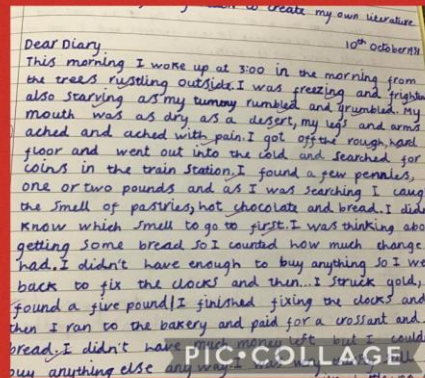 to create my own literature
Dear Diary 10th October 1931
This morning I woke up at 3:00 in the morning from
the trees rustling outside. I was freezing and
also starving as my tummy rumbled and grumbled. My
mouth was as dry as a desert, my legs and arms
ached and ached with pain. I got off the rough, hard
floor and went out into the cold and searched for
coins in the train station. I found a few pennies,
one or two pounds and as I was searching I caug
the smell of pastries, hot chocolate and bread. I
know which smell to go to first. I was thinking abo
getting some bread so I counted how much change
had. I didn't have enough to buy anything so I we
back to fix the clocks and then... I struck gold,
found a five pound! I finished fixing the clocks and
then I ran to the bakery and paid for a crossant and
bread. I didn't have much money left but I could
buy anything else any way. I was very
PIC•COLLAGE